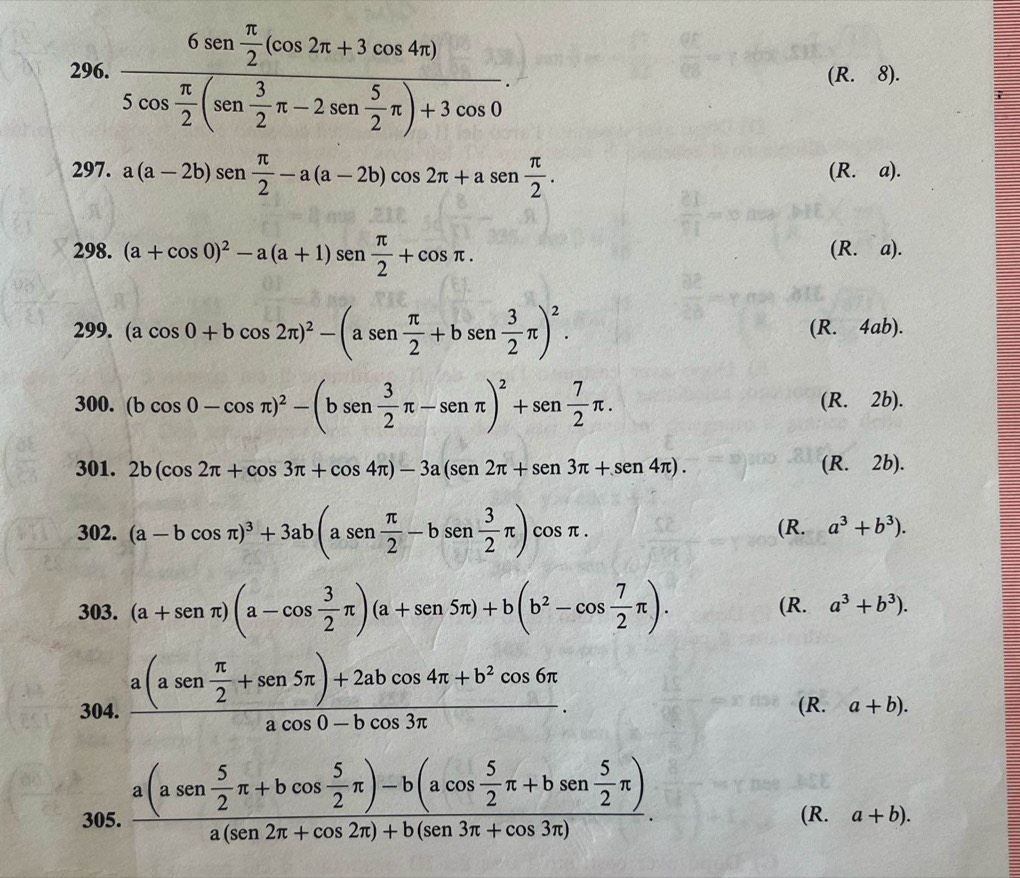 296. \frac{6 sen \frac{π}{2} (cos 2π + 3 cos 4π)}{5 cos \frac{π}{2} (sen \frac{3}{2} π − 2 sen \frac{5}{2} π) + 3 cos 0} . (R. 8).
297. a (a − 2b) sen \frac{π}{2} − a (a − 2b) cos 2π + a sen \frac{π}{2} . (R. a).
298. (a + cos 0)² − a (a + 1) sen \frac{π}{2} + cos π . (R. a).
299. (a cos 0 + b cos 2π)² − (a sen \frac{π}{2} + b sen \frac{3}{2} π)² . (R. 4ab).
300. (b cos 0 − cos π)² − (b sen \frac{3}{2} π − sen π)² + sen \frac{7}{2} π . (R. 2b).
301. 2b (cos 2π + cos 3π + cos 4π) − 3a (sen 2π + sen 3π + sen 4π) . (R. 2b).
302. (a − b cos π)³ + 3ab (a sen \frac{π}{2} − b sen \frac{3}{2} π) cos π . (R. a³ + b³).
303. (a + sen π) (a − cos \frac{3}{2} π) (a + sen 5π) + b (b² − cos \frac{7}{2} π) . (R. a³ + b³).
304. \frac{a (a sen \frac{π}{2} + sen 5π) + 2ab cos 4π + b² cos 6π}{a cos 0 − b cos 3π} . (R. a + b).
305. \frac{a (a sen \frac{5}{2} π + b cos \frac{5}{2} π) − b (a cos \frac{5}{2} π + b sen \frac{5}{2} π)}{a (sen 2π + cos 2π) + b (sen 3π + cos 3π)} . (R. a + b).